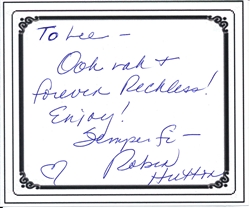 To Lee –
Ooh rah +
forever Reckless!
Enjoy!
Semper Fi –
Robin
Hutton